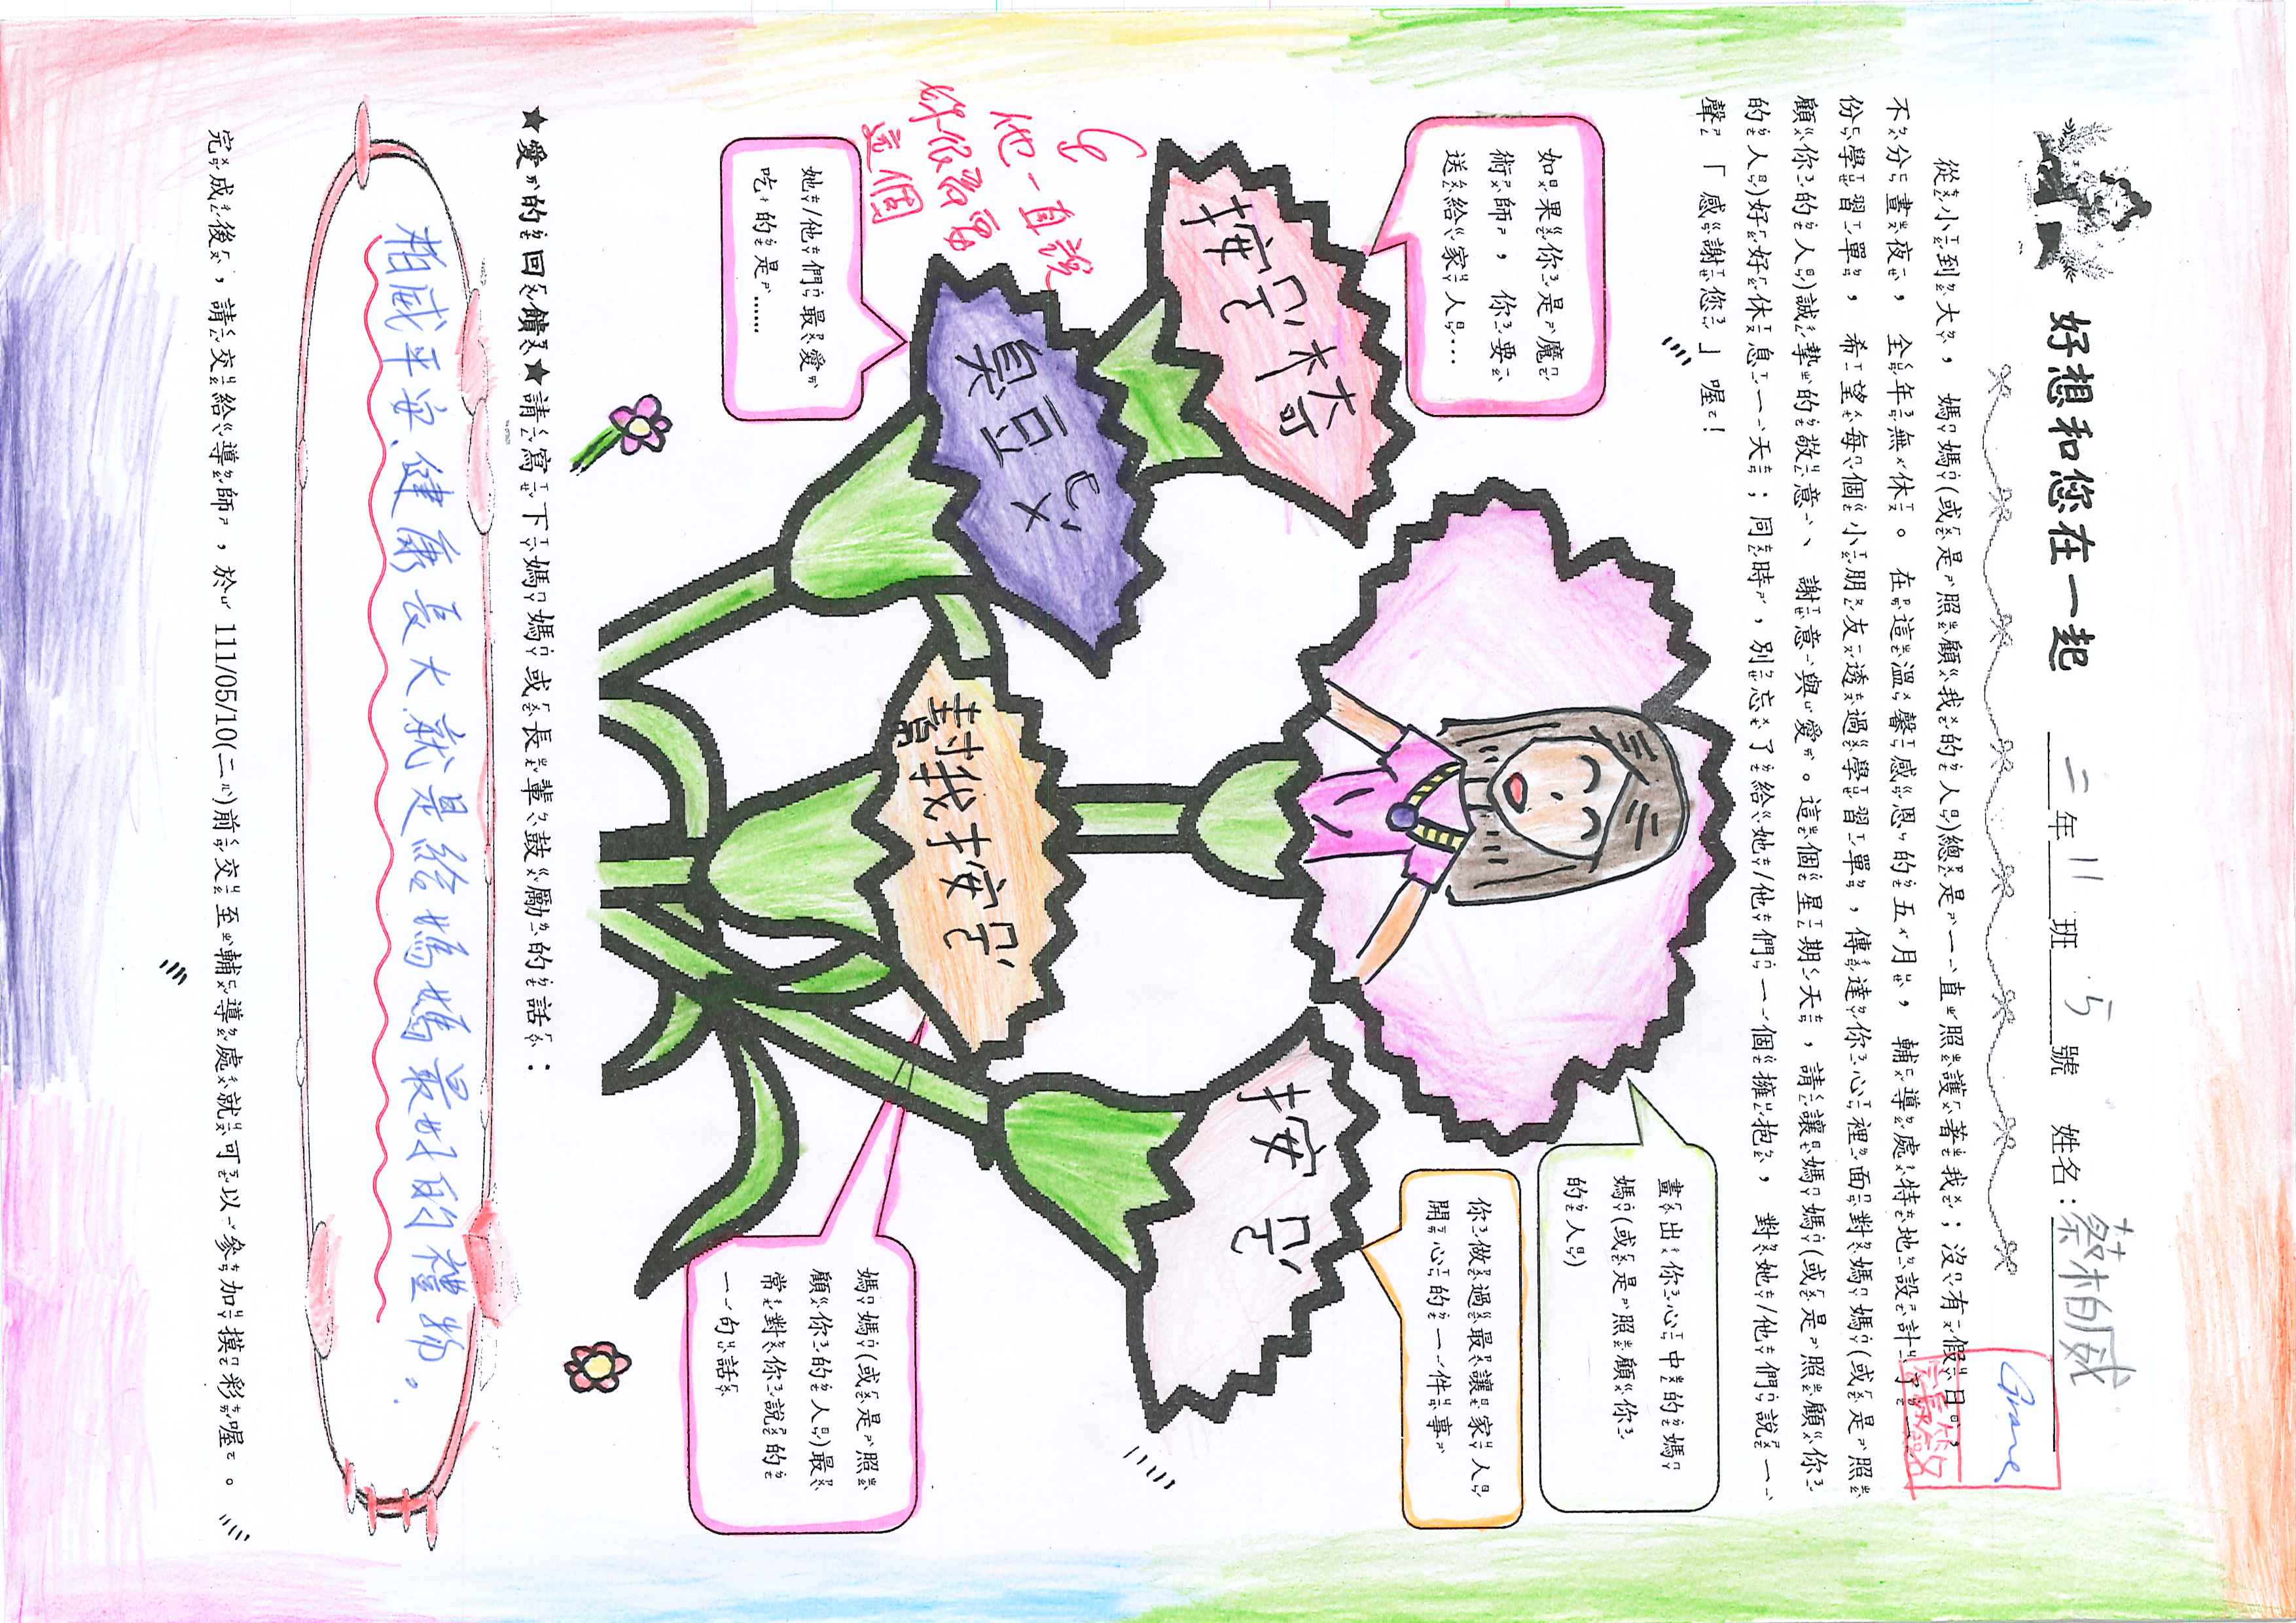 好想和您在一起 二年11班5號 姓名:蔡柏威
Grane
家長簽名
從小到大,媽媽(或是照顧我的人)總是一直照護著我;沒有假日,
不分晝夜,全年無休。在這溫馨感恩的五月,輔導處特地設計了
份學習單,希望每個小朋友透過學習單,傳達你心裡面對媽媽(或是照
顧你的人)誠摯的敬意、謝意與愛。這個星期天,請讓媽媽(或是照顧你
的人)好好休息一天;同時,別忘了給她/他們一個擁抱,對她/他們說一
聲「感謝您」喔!
畫出你心中的媽
媽(或是照顧你
的人)
如果你是魔
術師,你要
送給家人…
按ㄇㄛˊ椅
你做過最讓家人
開心的一件事
按ㄇㄛˊ
她/他們最愛
吃的是……
臭豆ㄈㄨˇ
他一直說
好很需要
這個
媽媽(或是照
顧你的人)最
常對你說的
一句話
幫我按ㄇㄛˊ
★愛的回饋★請寫下媽媽或長輩鼓勵的話:
柏威平安、健康長大就是給媽媽最好的禮物。
完成後,請交給導師,於111/05/10(二)前交至輔導處就可以參加摸彩喔。